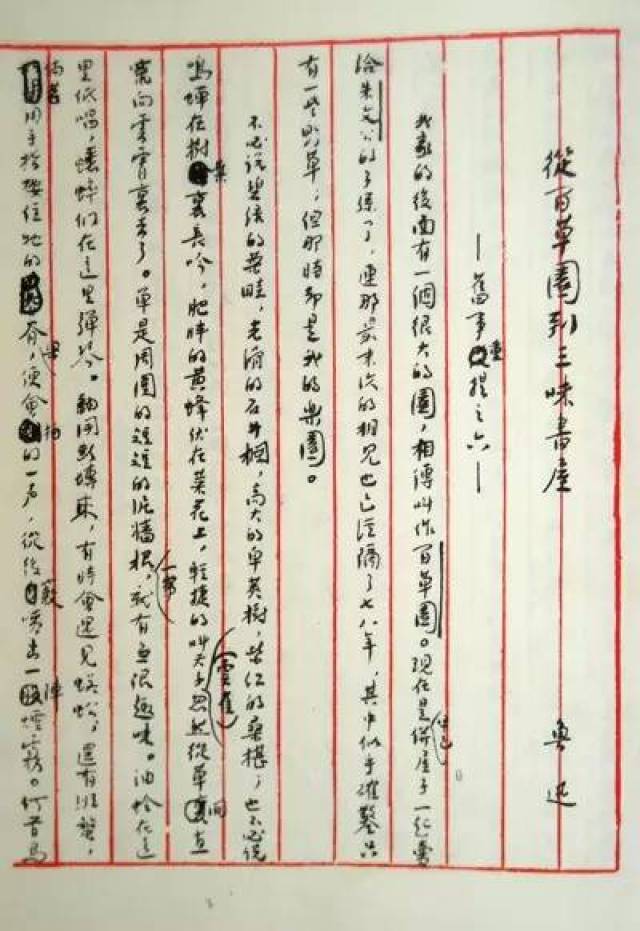 從百草園到三味書屋 魯迅
—舊事重提之六—
我家的後面有一個很大的園，相傳叫作百草園。現在是早已併屋子一起賣
給朱文公的子孫了，連那最末次的相見也已經隔了七八年，其中似乎確鑿只
有一些野草；但那時却是我的樂園。
不必說碧綠的菜畦，光滑的石井欄，高大的皁莢樹，紫红的桑椹；也不必說
鳴蟬在樹葉裏長吟，肥胖的黄蜂伏在菜花上，輕捷的叫天子（雲雀）忽然從草間直
竄向雲霄裏去了。單是周圍的短短的泥牆根一帶，就有無限趣味。油蛉在這
里低唱，蟋蟀們在這里彈琴。翻開斷磚來，有時會遇見蜈蚣；還有斑蝥，
倘若用手指按住牠的脊梁，便會拍的一声，從後竅噴出一陣煙霧。何首烏